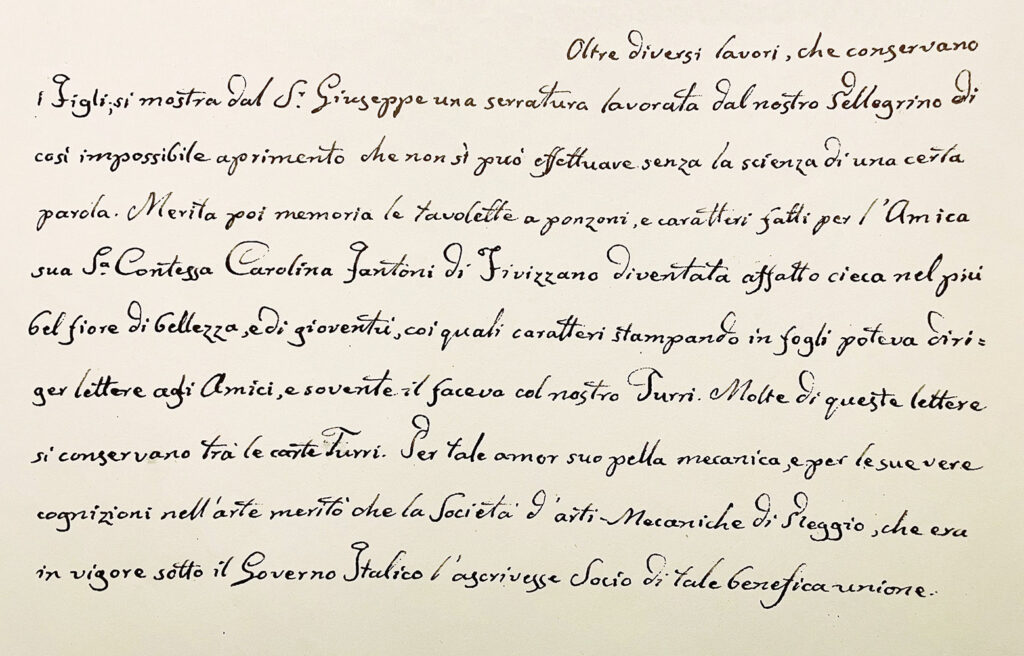 Oltre diversi lavori, che conservano
i Figli, si mostra dal S.r Giuseppe una serratura lavorata dal nostro Pellegrino di
così impossibile aprimento che non sì può effettuare senza la scienza di una certa
parola. Merita poi memoria le tavolette a ponzoni, e caratteri fatti per l'Amica
sua S.ra Contessa Carolina Fantoni di Fivizzano diventata affatto cieca nel più
bel fiore di bellezza, e di gioventù, coi quali caratteri stampando in fogli poteva diri=
ger lettere agli Amici, e sovente il faceva col nostro Turri. Molte di queste lettere
si conservano trà le carte Turri. Per tale amor suo pella mecanica, e per le sue vere
cognizioni nell'arte meritò che la Società d'arti Mecaniche di Reggio, che era
in vigore sotto il Governo Italico l'ascrivesse Socio di tale benefica unione.